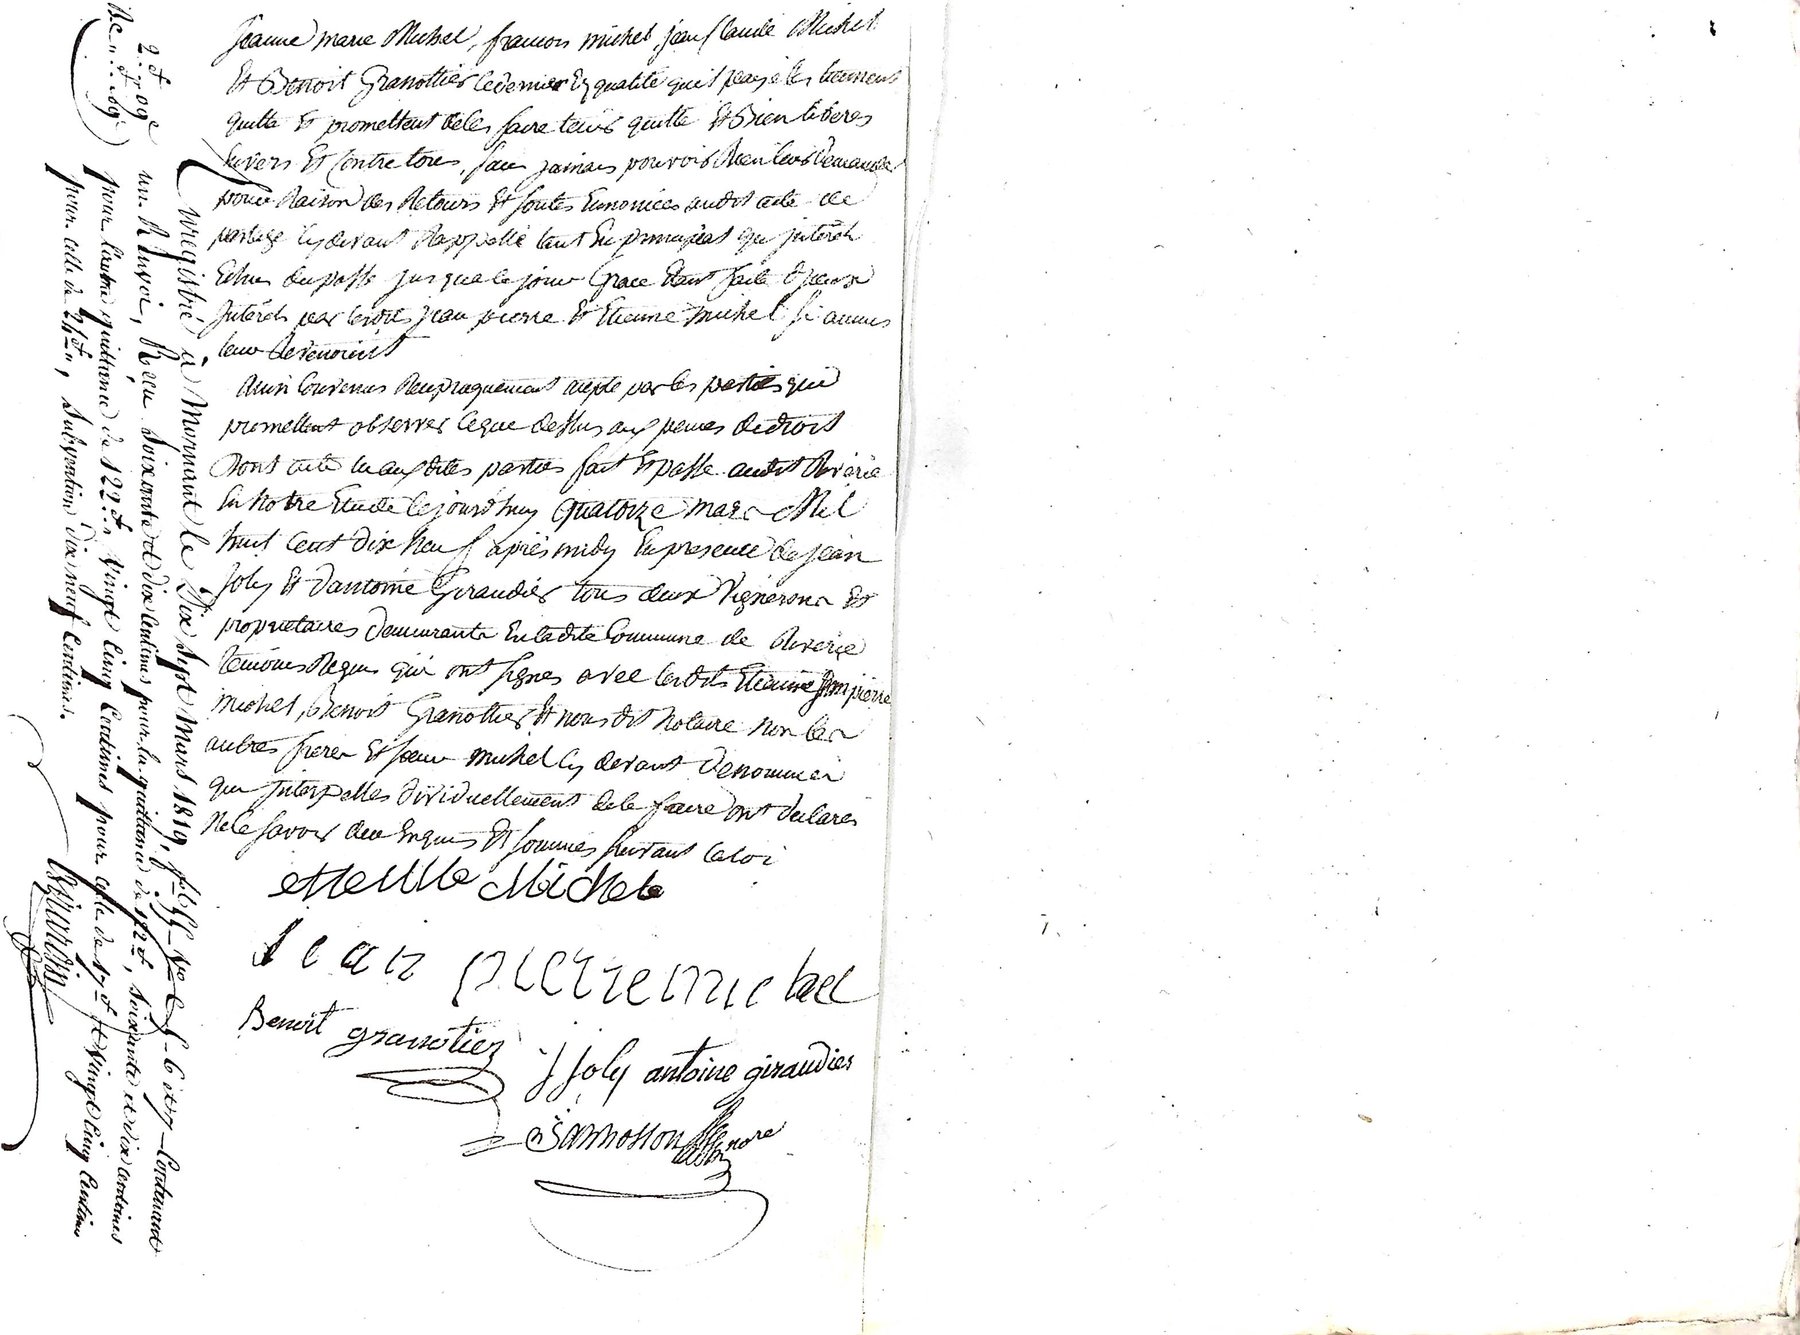 Jeanne marie Michel, francois michel, jean Claude Michel
Et Benoit Granottier ce dernier En qualité quil peag les tiennent
quitte Et promettent de les faire tenir quitte Et Bien liberes
Envers Et Contre tous, sans jamais pouvoir Rien leur demander
pour Raison des Retours Et soutes Enoncées audit acte de
partage Cy devant Rappellé tant En principal que jnterets
Echus du passé jusqua ce jour Grace Etant faite d'jceux
jnterets par lesdits jean pierre Et Etienne michel si aucuns
leur devenoint
Ainsi Convenus Reciproquement accepté par les parties qui
promettent observer ce que dessus aux peines de droit
Dont acte lu aux dites parties fait Et passé audit Riverie
En Notre Etude Cejourd'huy quatorze mars Mil
huit Cent dix Neuf après midy En presence de jean
Joly Et d'antoine Giraudier tous deux Vignerons Et
proprietaires demeurants En ladite Commune de Riverie
temoins Requis qui ont signés avec lesdits Etienne Jean pierre
michel, Benoit Granottier Et nous dit Notaire non les
autres freres Et sœur michel Cy devant denommés
que jnterpellés dividuellement de le faire ont declarés
Ne le savoir deux Enquis Et sommés suivant la loi
etienne Michel
Jean pierre michel
Benoit granotier
J Joly antoine giraudier
Bannosson nore
Enregistré à Mornant le Dix Sept Mars 1819, f° 55 v° C 5-6 et 7 Contenant
un Renvoi, Reçu soixante et dix Centimes pour la quittance de 142 f, soixante et dix Centimes
pour l'autre quittance de 122 f vingt Cinq Centimes pour celle de 47 f et vingt Cinq Centimes
pour celle de 24 f, Subvention dix neuf Centimes.